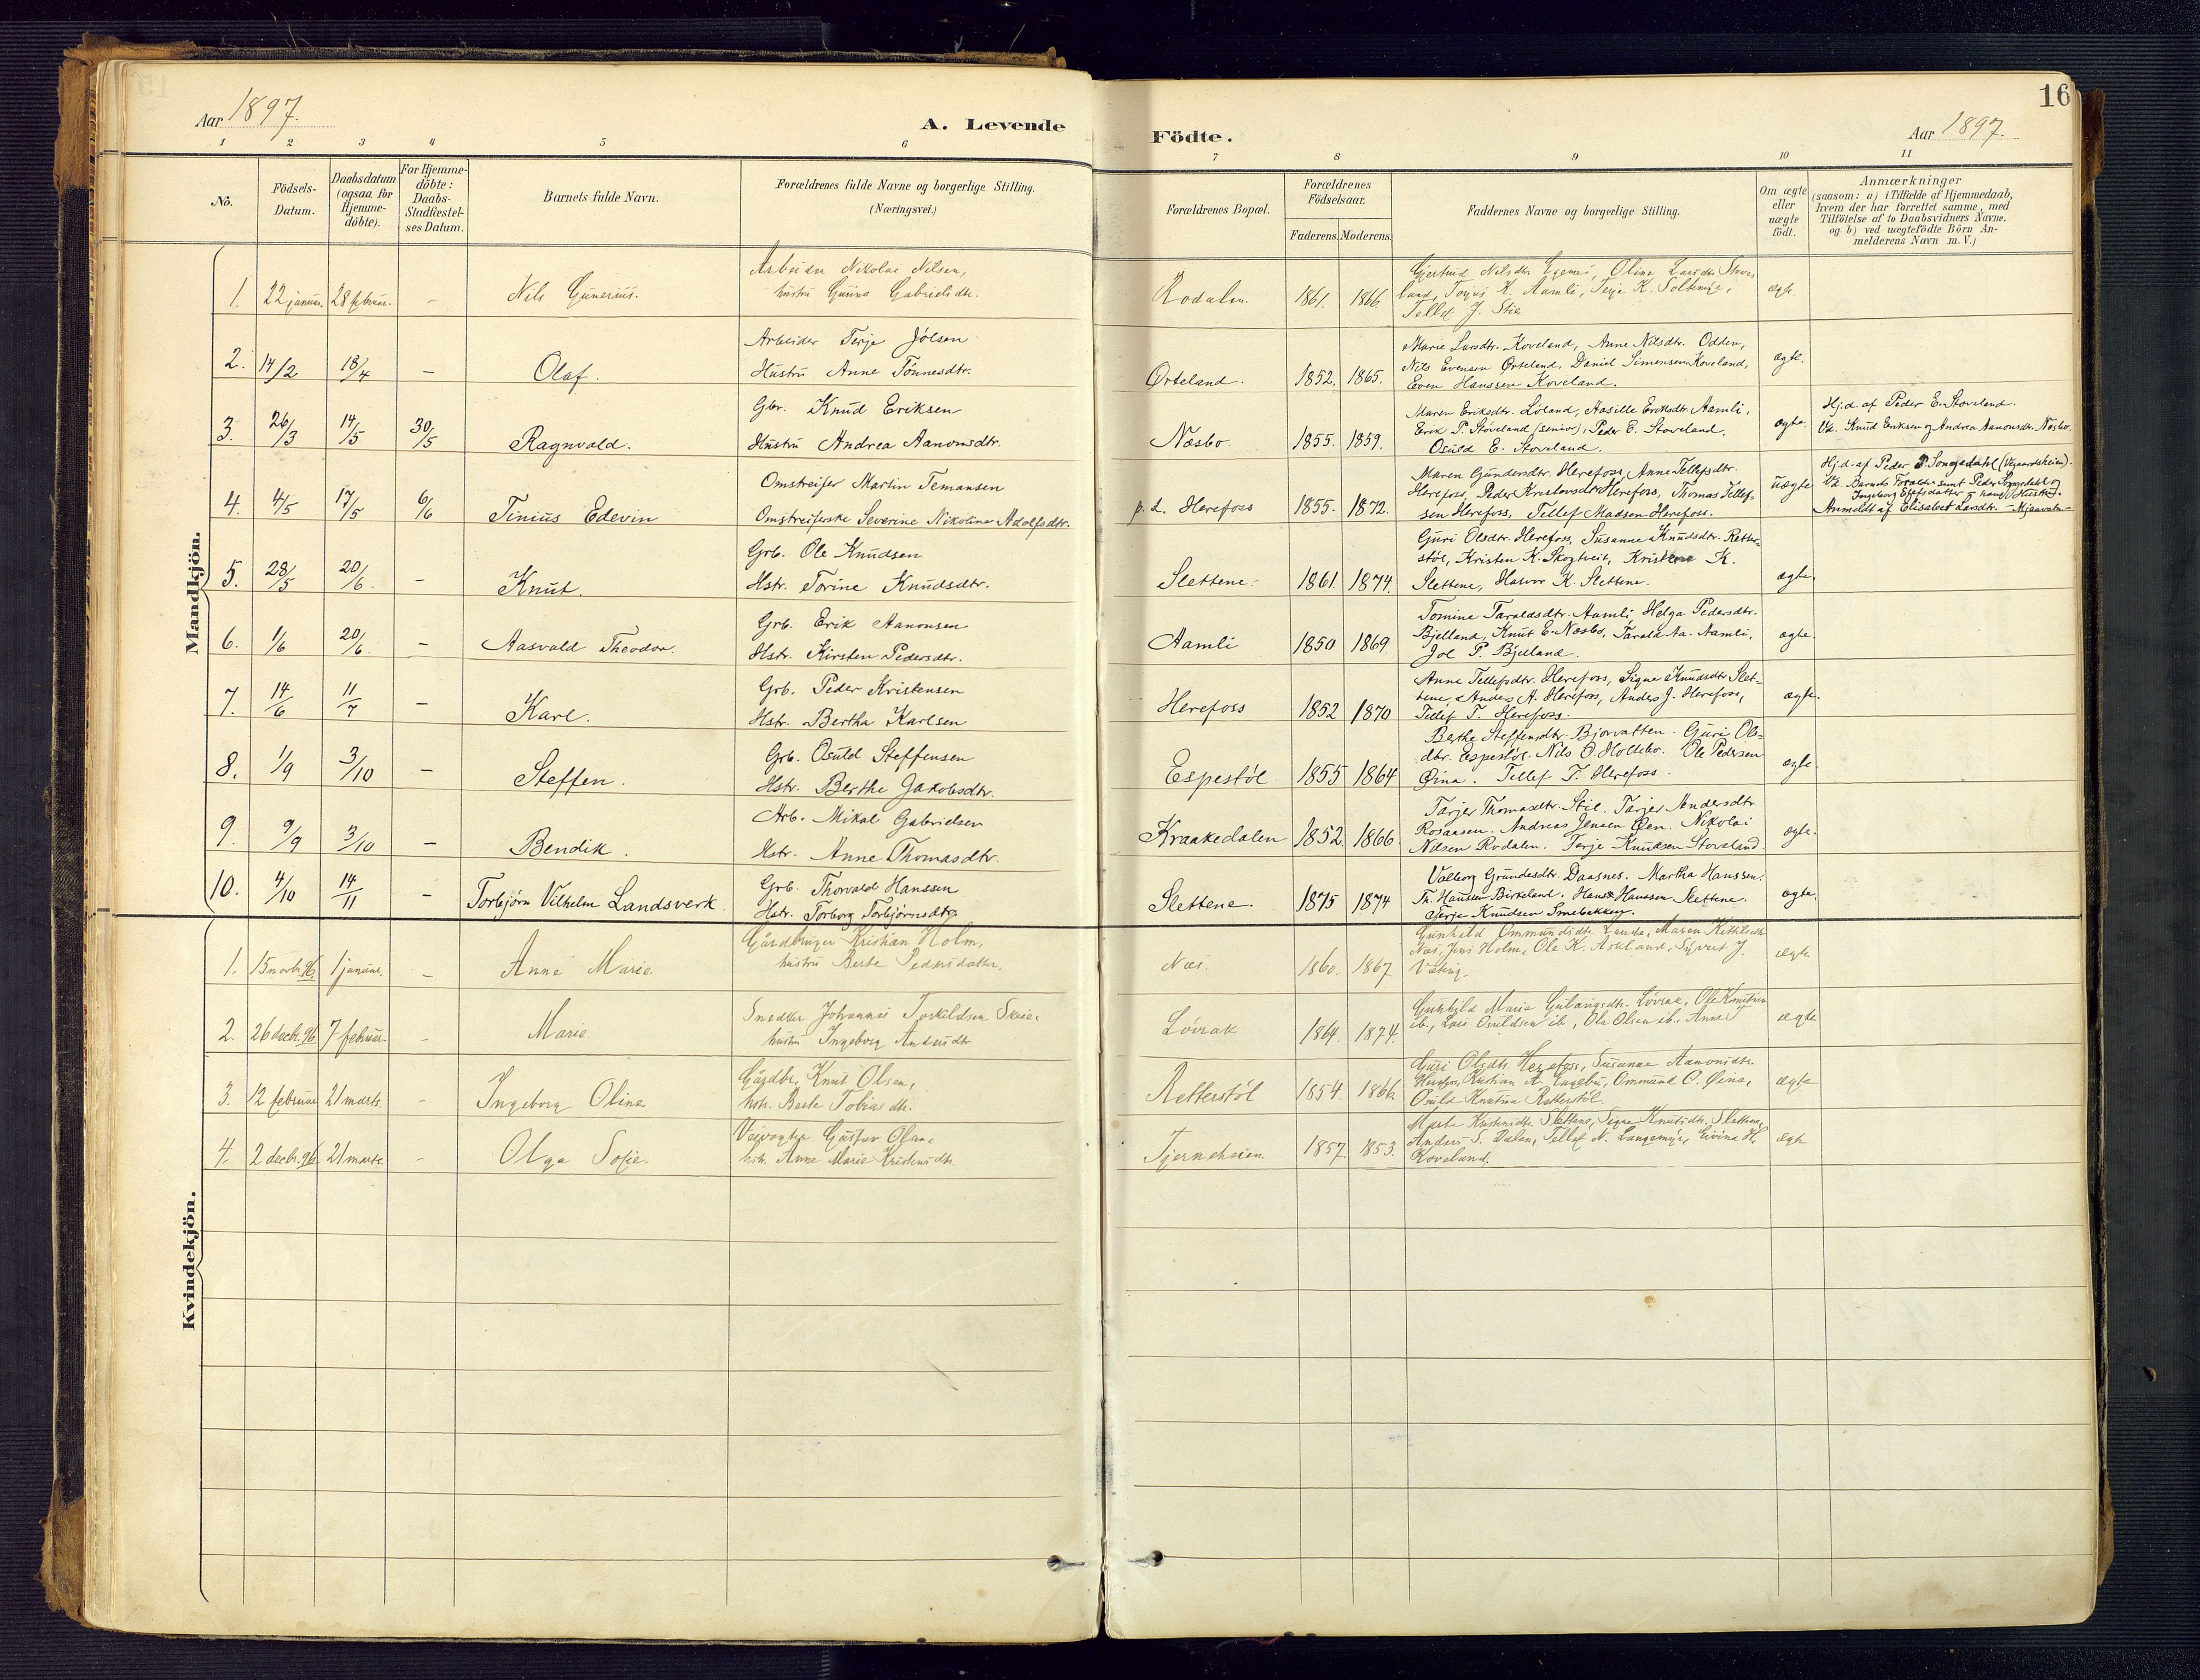 Aar 1897.
A. Levende
Födte.
16
Aar 1897.
1 2 3 4 5 6 7 8 9 10 11
No.
Födsels-Datum.
Daabsdatum (ogsaa for Hjemme-döbte).
For Hjemme-döbte: Daabs-Stadfæstel-ses Datum.
Barnets fulde Navn.
Forældrenes fulde Navne og borgerlige Stilling.
(Næringsvei.)
Forældrenes Bopæl.
Forældrenes Födselsaar.
Faderens. Moderens.
Faddernes Navne og borgerlige Stilling.
Om ægte eller uægte födt.
Anmærkninger
(saasom: a) i Tilfælde af Hjemmedaab,
hvem der har forrettet samme, med
Tilföielse af to Daabsvidners Navne.
og b) ved uægtefödte Börn An-
melderens Navn m. V.)
Mandkjön.
1. 22 januar 28 februar. – Nils Gunerius.
Arbeider Nikolai Nilsen,
hustru Gunna Gabrielsdtr.
Rodalen. 1861. 1866
Gjertrud Nilsdtr Olina Larsdtr Stove-
land, K. Aamli, Terje K.
Tellef J. Stie
ægte.
2. 14/2 18/4 – Olaf.
Arbeider Terje Jölsen
Hustru Anne Tönnesdtr.
Örteland. 1852. 1865.
Marie Larsdtr. Koveland, Anne Nilsdtr. Odden,
Nils Evensen Örteland, Daniel Simensen Koveland,
Even Hanssen Koveland.
ægte.
3. 26/3 14/5 30/5 Ragnvald.
Gbr. Knud Eriksen
Hustru Andrea Aanonsdtr.
Næsbo 1855. 1859.
Maren Eriksdtr. Löland, Aasille Eriksdtr. Aamli,
Erik P. Stoveland (senior), Peder E. Stoveland,
Osuld E. Stoveland.
ægte
Hj.d. af Peder E. Stoveland.
Vd. Knud Eriksen og Andrea Aanonsdtr. Næsbo.
4. 4/5 17/5 6/6 Tinius Edevin
Omstreifer Martin Temansen
Omstreiferske Severine Nikoline Adolfsdtr.
p. t. Herefoss 1855. 1872.
Maren Gundersdtr. Herefoss, Anne Tellefsdtr.
Herefoss, Peder Kristensen Herefoss, Thomas Tellef-
sen Herefoss, Tellef Madsen Herefoss.
uægte
Hj.d. af Peder P. Songedahl (Vegaardsheien).
Vd. Barnets Forældre samt Peder Songedahl og
Ingeborg og hans Hustru.
Anmeldt af Elisabet Larsdtr.
5. 28/5 20/6 – Knut.
Grb. Ole Knudsen
Hstr. Torine Knudsdtr.
Slettene. 1861 1874.
Guri Olsdtr. Herefoss, Susanne Knudsdtr. Retter-
støl, Kristen K. Skogtveit, Kristene K.
Slettene, Halvor K. Slettene.
ægte.
6. 1/6 20/6 – Aasvald Theodor.
Grb. Erik Aanonsen
Hstr. Kirsten Pedersdtr.
Aamli 1850 1869
Tomine Taraldsdtr. Aamli, Helga Pedersdtr.
Bjelland, Knut E. Næsbo, Tarald Aa. Aamli,
Jol P. Bjelland.
ægte.
7. 14/6 11/7 – Karl.
Grb. Peder Kristensen
Hstr. Bertha Karlsen
Herefoss 1852 1870
Anne Tellefsdtr. Herefoss, Signe Knudsdtr Slet-
tene, Anders A. Herefoss, Anders J. Herefoss,
Tellef T. Herefoss.
ægte.
8. 1/9 3/10 – Steffen.
Grb. Osuld Steffensen
Hstr. Berthe Jakobsdtr.
Espestöl 1855 1864
Berthe Steffensdtr. Bjorvatten. Guri Ols-
dtr. Espestöl. Nils O. Holtebo. Ole Pedersen
Öina. Tellef T. Herefoss.
ægte.
9. 9/9 3/10 – Bendik.
Arb. Mikal Gabrielsen
Hstr. Anne Thomasdtr.
Kraakedalen 1852. 1866.
Tarjer Thomasdtr. Stie. Tarjer Andersdtr
Rosaasen. Andreas Jensen Öen. Nikolai
Nilsen Rodalen. Terje Knudsen Stoveland.
ægte.
10. 4/10 14/11 – Torbjörn Vilhelm Landsverk
Grb. Thorvald Hanssen
Hstr. Torborg Torbjörnsdtr.
Slettene. 1875 1874
Valborg Gundersdtr. Daasnes. Martha Hanssen.
Th. Hanssen Birkeland. Hans Hanssen Slettene.
Terje Knudsen Smebakken.
ægte.
Kvindekjön.
1. 15 novbr. 96. 1 januar. – Anne Marie
Gårdbruger Kristian Holm,
hustru Berte Pedersdatter.
Næs. 1860. 1867.
Gunhild Ommundsdtr. Maren
Næs, Jens Holm, Ole K. Askland, Syvert J.
ægte
2. 26 decbr. 96 7 februar. – Marie.
Snedker Johannes Torkildsen
hustru Ingeborg Andersdtr
Lövrak 1864. 1874.
Gunhild Marie Lövrak, Ole Knutsen
ib., Lars Osuldsen ib., Ole Olsen ib. Anne
ægte
3. 12 februar 21 marts. – Ingeborg Olina
Gårdbr. Knut Olsen,
hstr. Berte Tobiasdtr.
Retterstöl 1854. 1866.
Guri Olsdtr. Herefoss, Susanne Aanonsdtr.
Kristian A. Ommund O. Öina,
Osuld Knutsen Retterstöl.
ægte
4. 2 decbr. 96 21 marts. – Olga Sofie.
Veivogter Gustav Olsen,
hstr. Anne Marie Kristensdtr.
Tjerneheien. 1857. 1853.
Marte Kristensdtr. Slettene, Signe Knutsdtr. Slettene,
Anders S. Dalen, Tellef N. Langemyr, Eivind H.
Koveland.
ægte